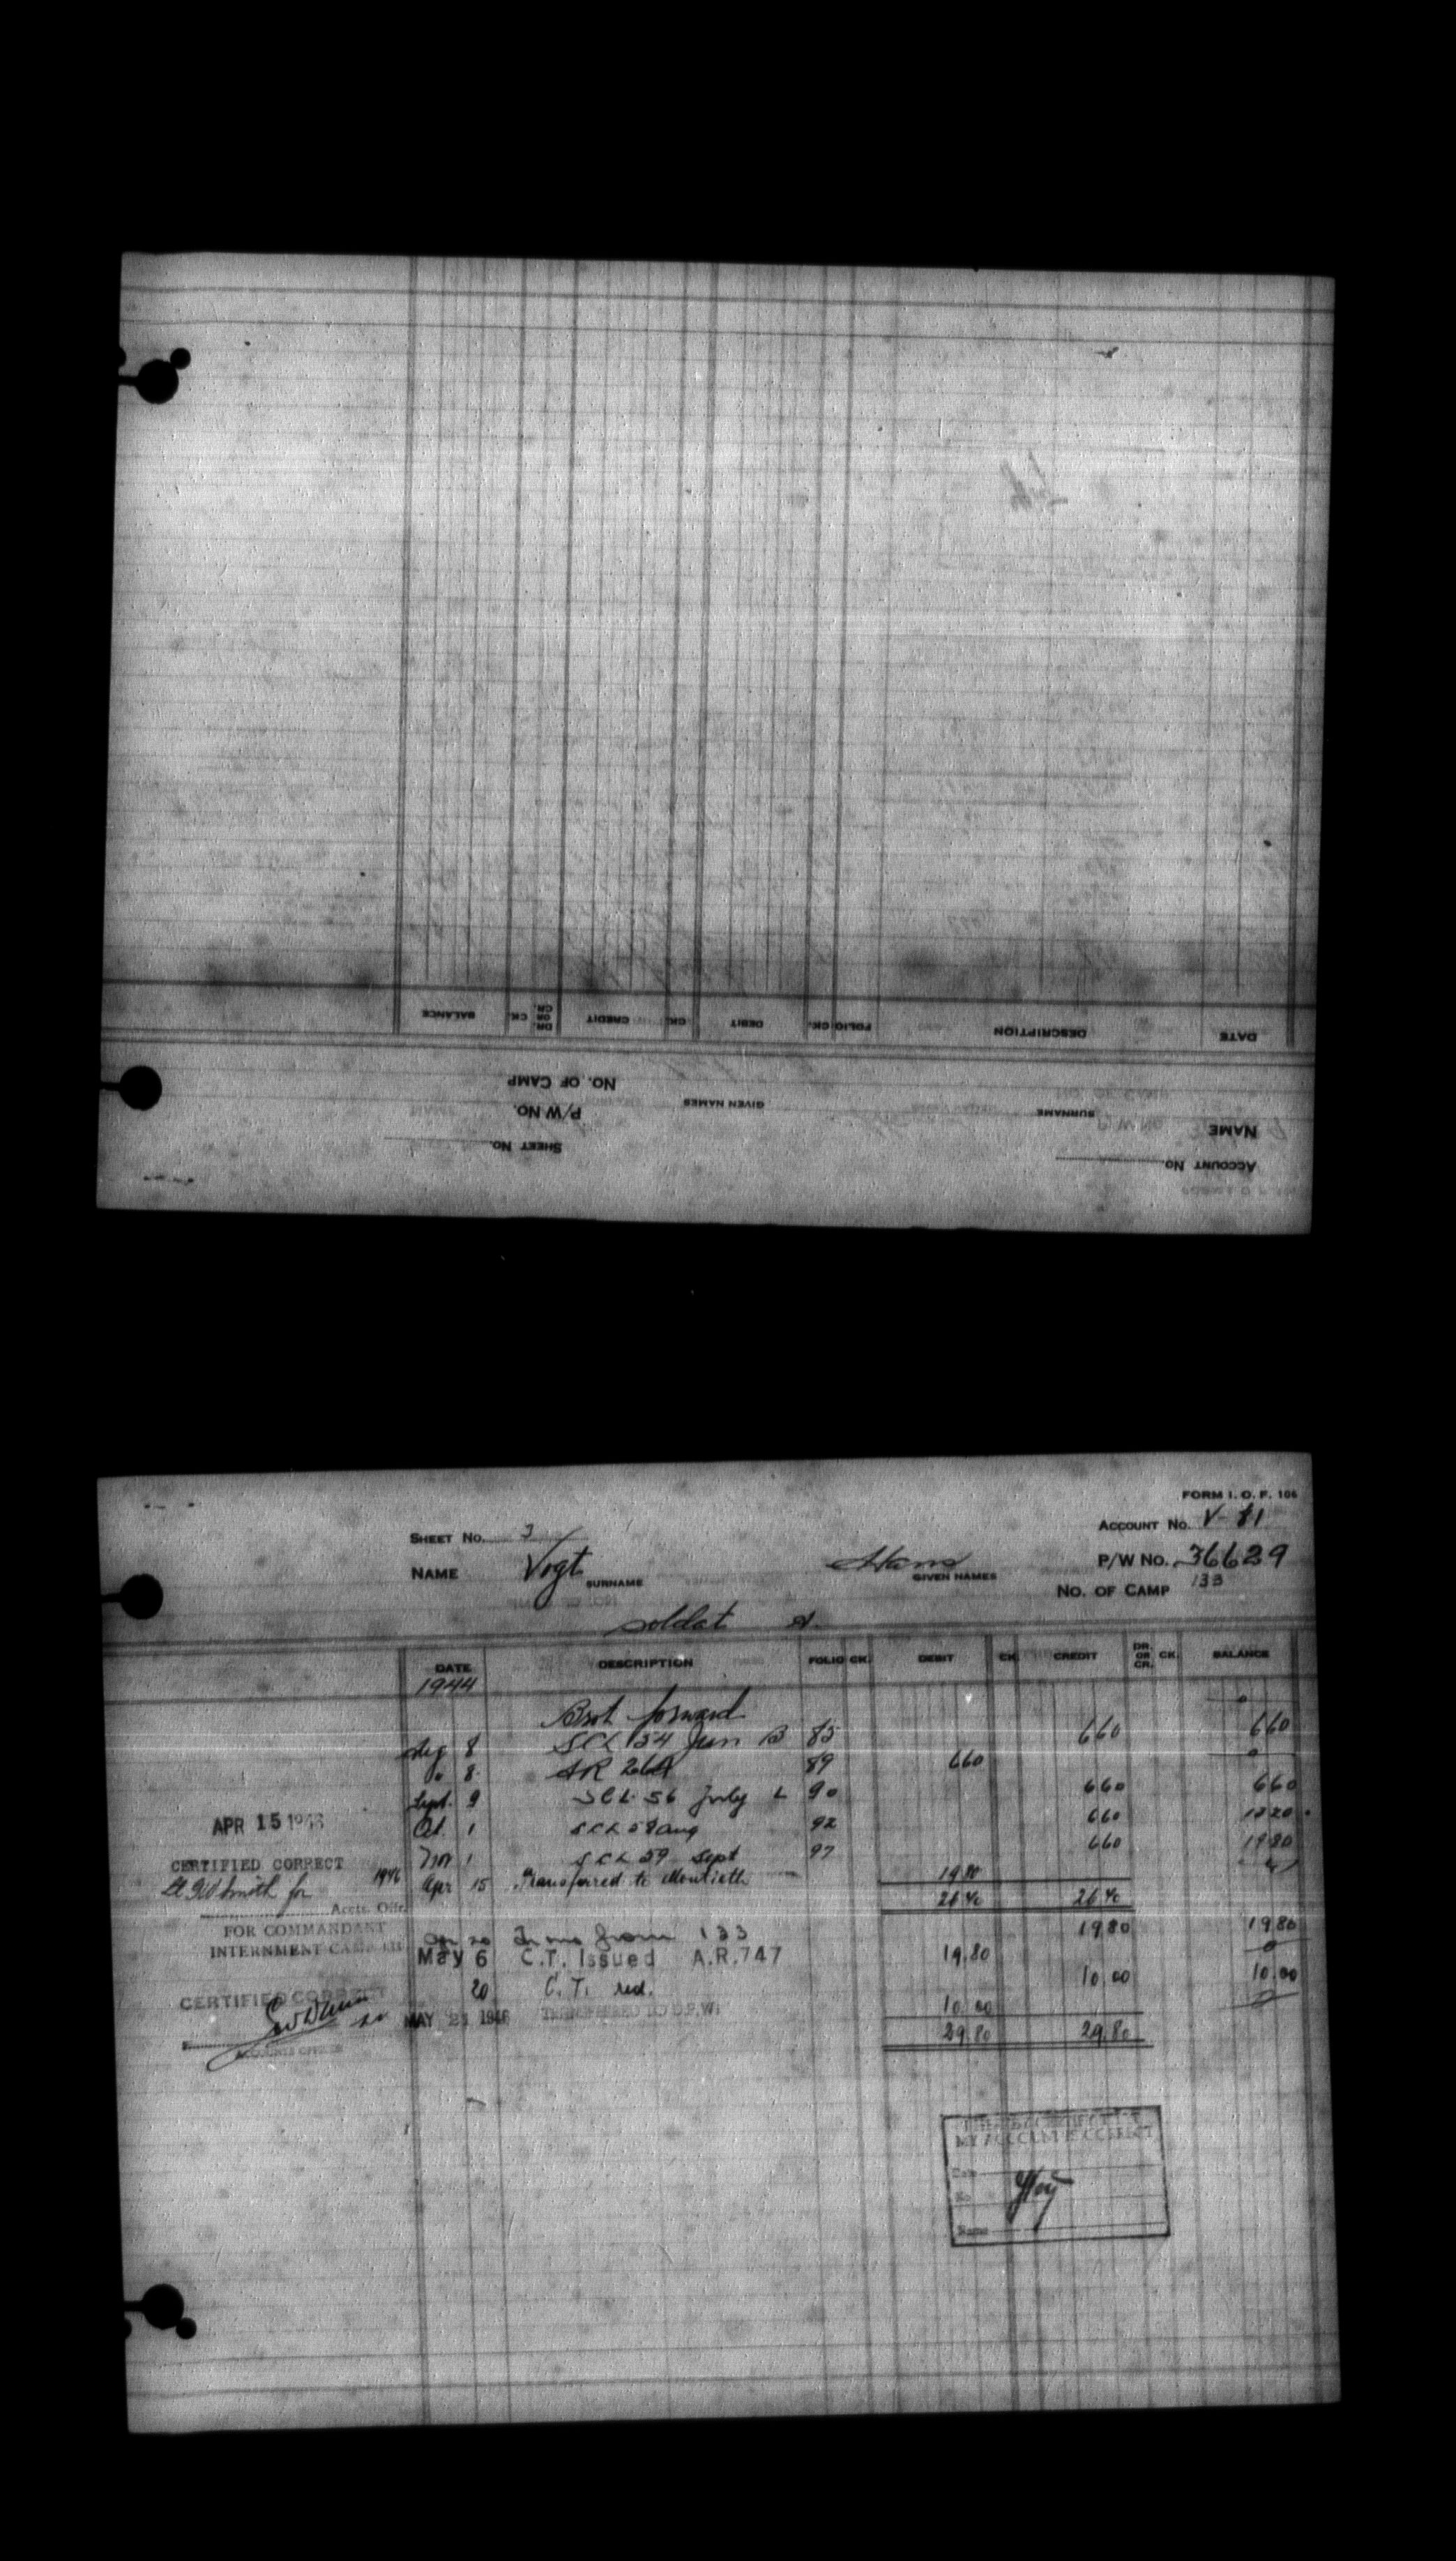 DATE
DESCRIPTION
FOLIO
CK.
DEBIT
CK.
CREDIT
DR. OR CR.
CK.
BALANCE
NO. OF CAMP
P/W NO.
GIVEN NAMES
SURNAME
NAME
SHEET NO.
ACCOUNT NO.
FORM I. O. F. 106
SHEET NO. 2
ACCOUNT NO. V-81
NAME Vogt Hans P/W NO. 36629
SURNAME GIVEN NAMES
NO. OF CAMP 133
Soldat
DATE DESCRIPTION FOLIO CK. DEBIT CK. CREDIT DR. OR CR. CK. BALANCE
1944
Brot forward 0
Aug 8 SCL 54 Jun B 85 660 660
" 8 AR 264 89 660 0
Sept. 9 SCL 56 July L 90 660 660
Oct. 1 SCL 58 Aug 92 660 1320
Nov 1 SCL 59 Sept 97 660 1980
1946 Apr 15 Transferred to Montieth 1980
2640 2640
APR 15 1946
CERTIFIED CORRECT
Lt Smith for
Accts. Offr.
FOR COMMANDANT
INTERNMENT CAMP 133
Apr 20 Trans from 133 1980 1980
May 6 C.T. Issued A.R.747 19.80 0
20 C.T. red. 10.00 10.00
MAY 23 1946 TRANSFERRED TO D.P.W. 10.00 0
29.80 29.80
CERTIFIED CORRECT
ACCOUNTS OFFICER
MY ACCOUNT IS CORRECT
Date
No
Name